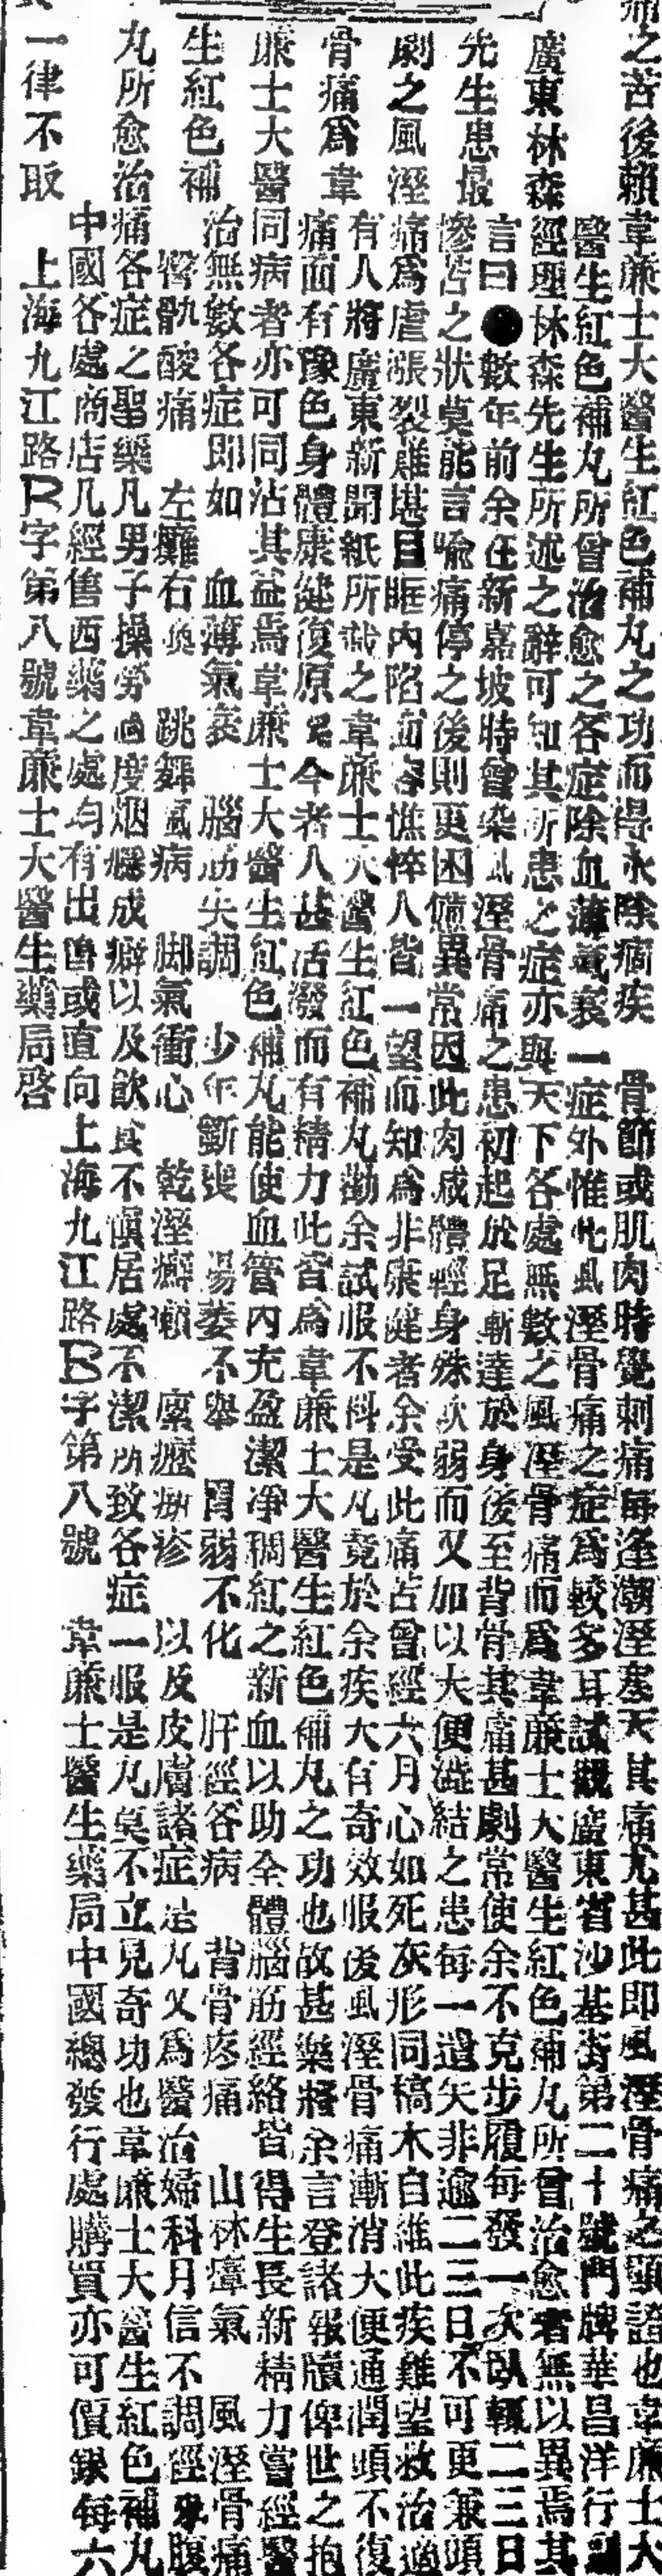 痛之苦後賴韋廉士大醫生紅色補丸之功而得永除痼疾　骨節或肌肉時覺刺痛每逢潮溼塞天其痛尤甚此即風溼骨痛之顯證也韋廉士大
醫生紅色補丸所曾治愈之各症除血薄氣衰一症外惟此風溼骨痛之症爲較多耳試觀廣東省沙基街第二十號門牌華昌洋行副
經理林森先生所述之辭可知其所患之症亦與天下各處無數之風溼骨痛而爲韋廉士大醫生紅色補丸所曾治愈者無以異焉其
言曰●數年前余在新嘉坡時曾染風溼骨痛之患初起於足漸達於身後至背骨其痛甚劇常使余不克步履每發一次臥輒二三日
慘苦之狀莫能言喻痛停之後則更困憊異常因此肉減體輕身殊軟弱而又加以大便澁結之患每一遺矢非逾二三日不可更兼頭
痛爲虐漲裂難堪目眶內陷面容憔悴人皆一望而知爲非康健者余受此痛苦曾經六月心如死灰形同槁木自維此疾難望救治適
有人將廣東新聞紙所載之韋廉士大醫生紅色補丸勸余試服不料是丸竟於余疾大有奇效服後風溼骨痛漸消大便通潤頭不復
痛面有豫色身體康健復原矣今者人甚活潑而有精力此皆爲韋廉士大醫生紅色補丸之功也故甚樂將余言登諸報牘俾世之抱
同病者亦可同沾其益焉韋廉士大醫生紅色補丸能使血管內充盈潔凈稠紅之新血以助全體腦筋經絡皆得生長新精力嘗經醫
治無數各症即如　血薄氣衰　腦筋失調　少年斲喪　陽萎不舉　胃弱不化　肝經各病　背骨疼痛　山林瘴氣　風溼骨痛
臀骫酸痛　左癱右瘓　跳舞風病　脚氣衝心　乾溼癬癩　瘰癧　疹　以及皮膚諸症　是丸又爲醫治婦科月信不調經來腹
痛各症之聖藥凡男子操勞過度烟癮成癖以及飲食不慎居處不潔所致各症一服是丸莫不立見奇功也韋廉士大醫生紅色補丸
中國各處商店凡經售西藥之處均有出售或直向上海九江路B字第八號　韋廉士醫生藥局中國總發行處購買亦可價銀每六
上海九江路B字第八號韋廉士大醫生藥局啓
廣東林森
先生患最
劇之風溼
骨痛爲韋
廉士大醫
生紅色補
丸所愈治
一律不取